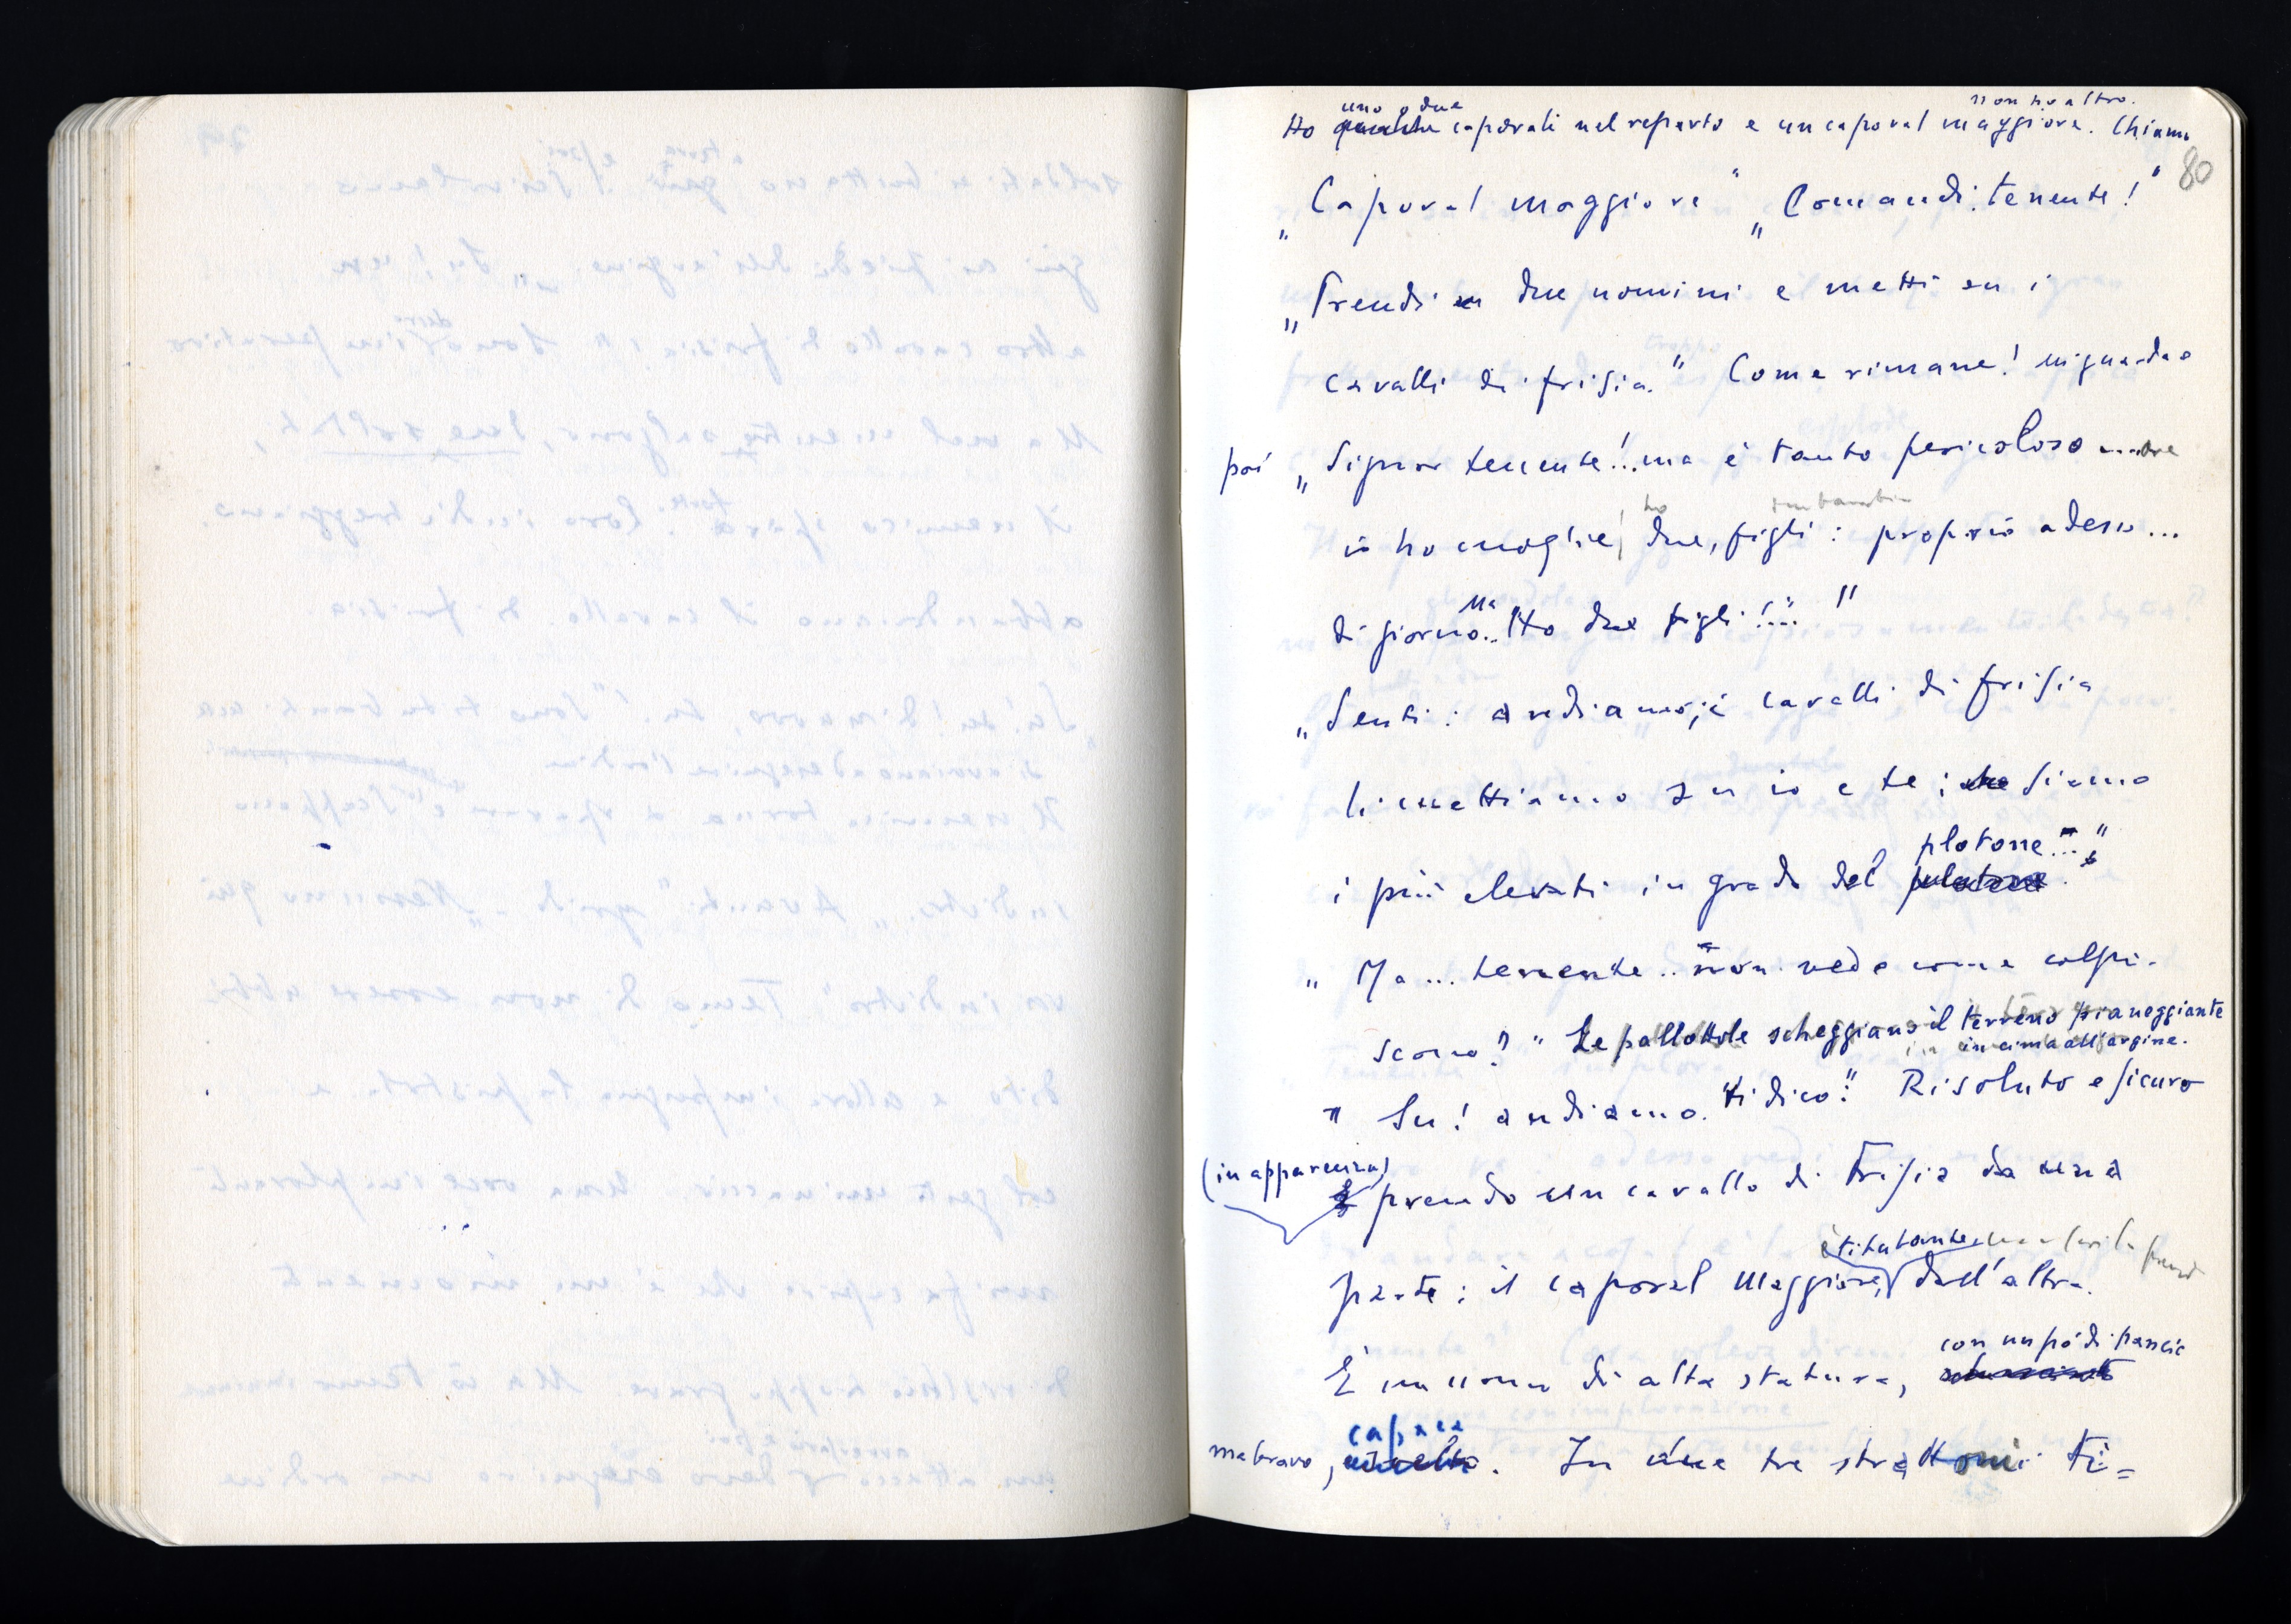 uno o due
non ho altro.
Ho qualche caporali nel reparto e un caporal maggiore. Chiamo
80
„Caporal maggiore" „Comandi, tenente!"
„Prendi due uomini e metti su i
cavalli di frisia." Come rimane! mi guarda e
poi „Signor tenente!.. ma è tanto pericoloso ....
ho
io ho moglie, due, figli: proprio adesso...
Ma
di giorno... Ho due figli!..."
„Senti: andiamo; i cavalli di frisia
li mettiamo su io e te; che siamo
plotone..."
i più elevati in grado del plotone."
„Ma... tenente.. non vede come colpi-
scono?" Le pallottole scheggiano il terreno pianeggiante
in cima all'argine.
"Su! andiamo. ti dico!" Risoluto e sicuro
(in apparenza)
prendo un cavallo di Frisia da una
è titubante,
parte; il caporal Maggiore, dall'altra.
con un pó di pancia
È un uomo di alta statura,
capace
ma bravo, svelto. In due tre strattoni ti=